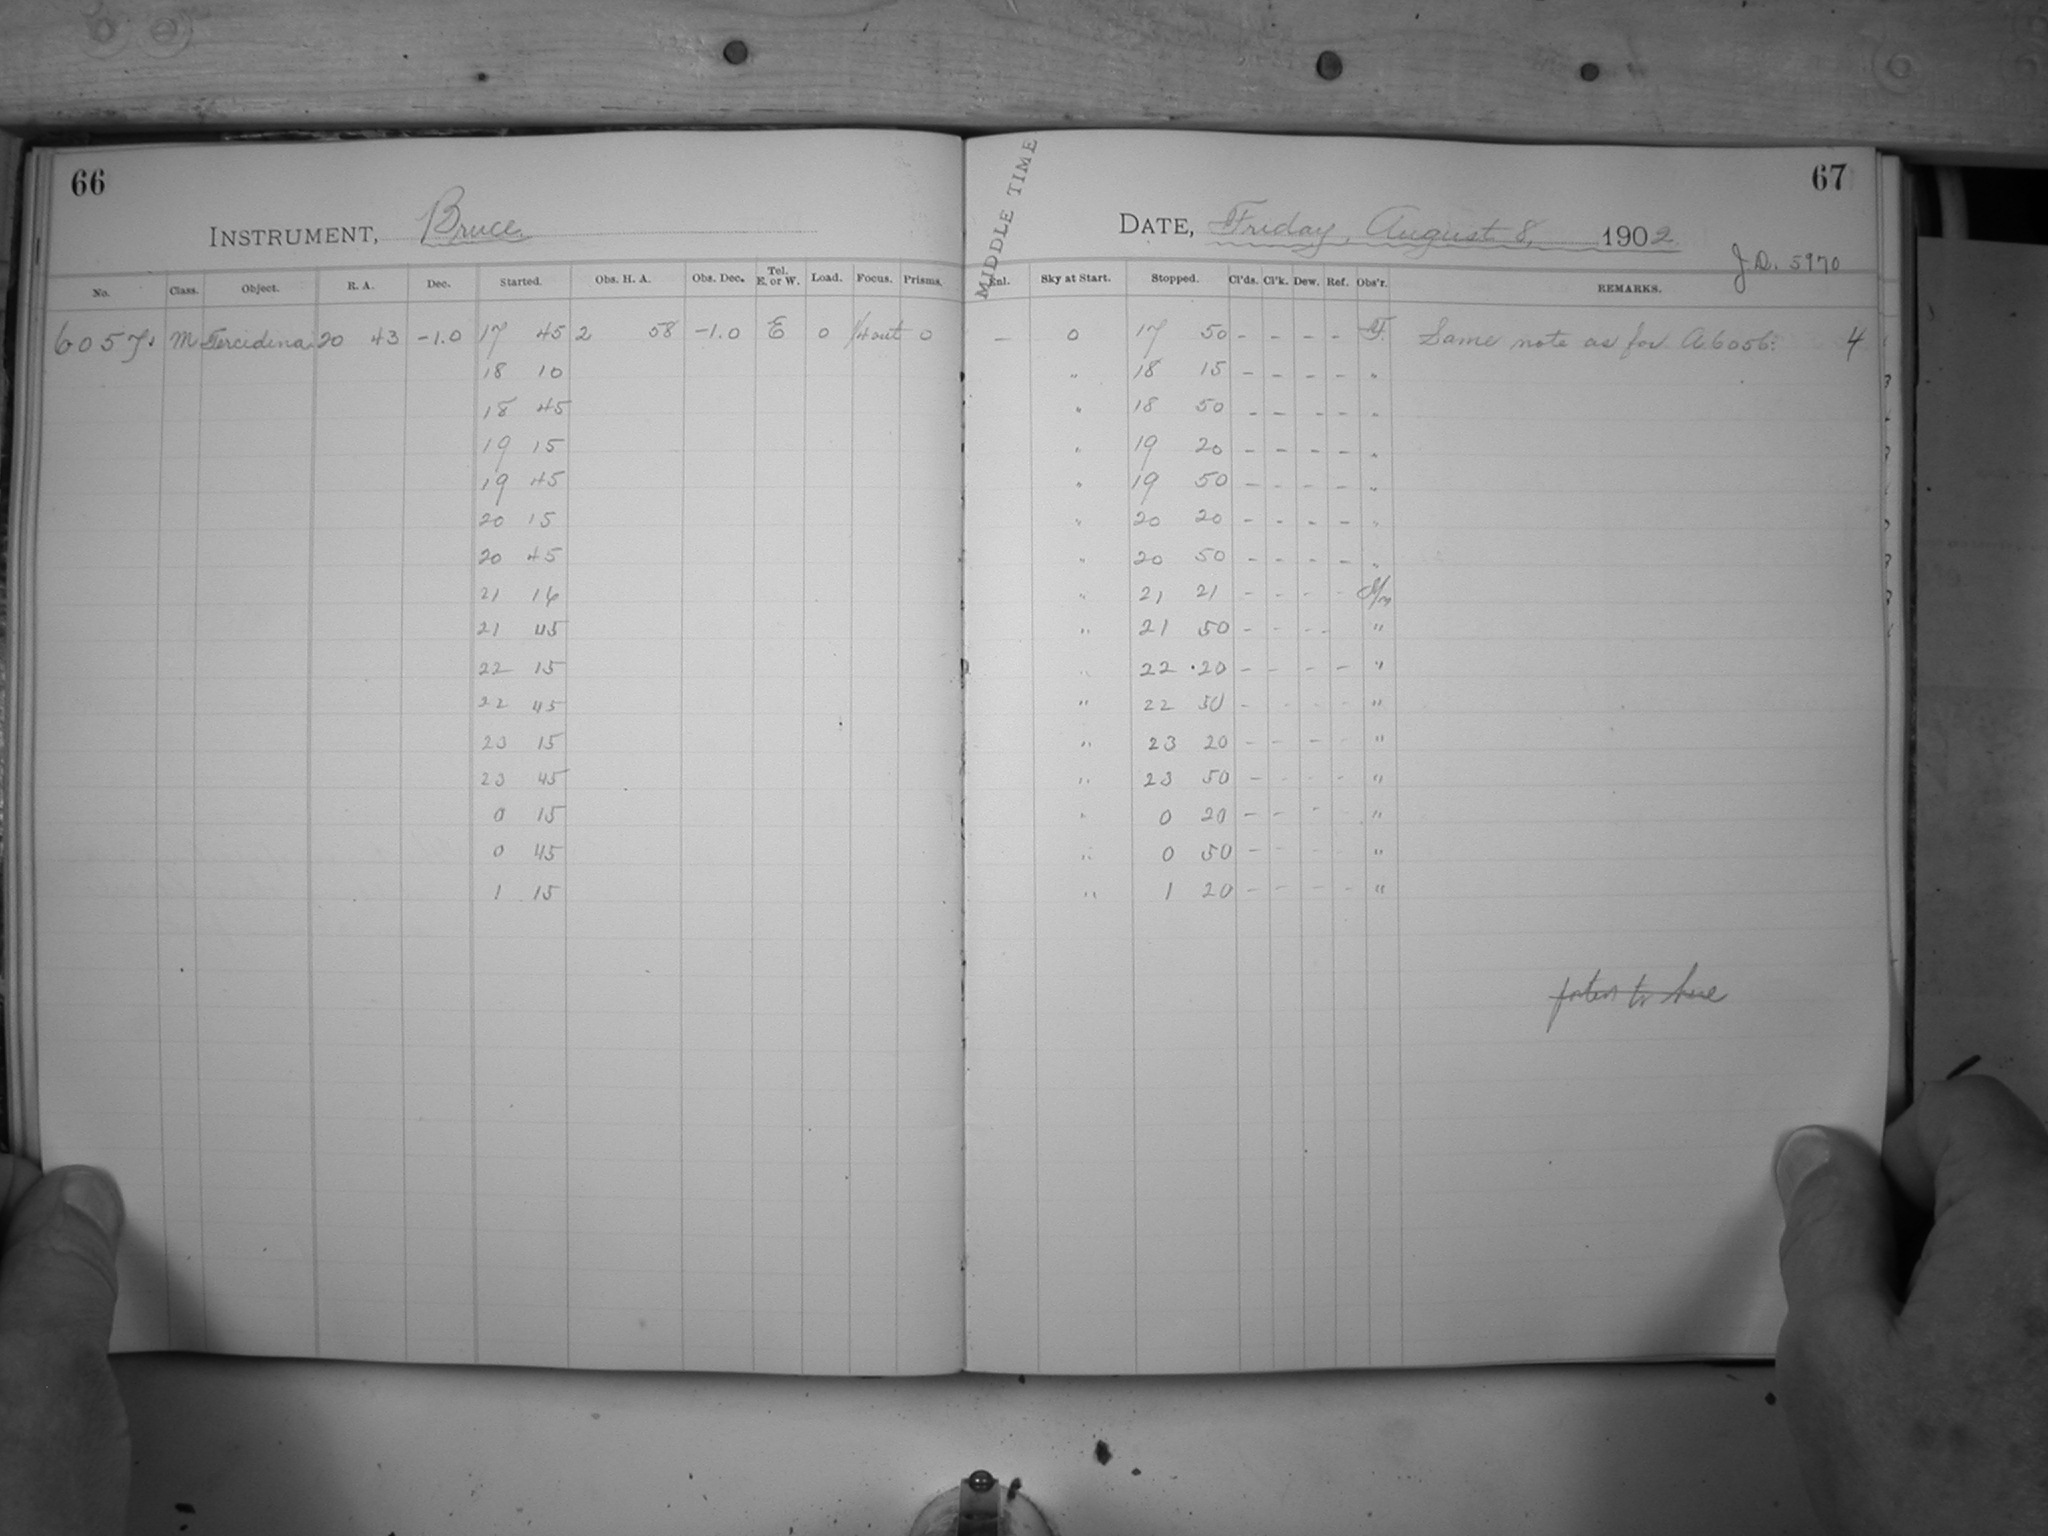 66
INSTRUMENT, Bruce
No. Class. Object. R. A. Dec. Started. Obs. H. A. Obs. Dec. Tel. E. or W. Load. Focus. Prisms.
6057. M Tercidina 20 43 -1.0 17 45 2 58 -1.0 E 0 14 out 0
18 10
18 45
19 15
19 45
20 15
20 45
21 16
21 45
22 15
22 45
23 15
23 45
0 15
0 45
1 15
MIDDLE TIME
67
DATE, Friday, August 8, 1902
J.D. 5970
Enl. Sky at Start. Stopped. Cl'ds. Cl'k. Dew. Ref. Obs'r. REMARKS.
— 0 17 50 - - - - F. Same note as for A6056. 4
" 18 15 - - - - "
" 18 50 - - - - "
" 19 20 - - - - "
" 19 50 - - - - "
" 20 20 - - - - "
" 20 50 - - - - "
" 21 21 - - - -
" 21 50 - - - - "
" 22 20 - - - - "
" 22 50 - - - - "
" 23 20 - - - - "
" 23 50 - - - - "
" 0 20 - - - - "
" 0 50 - - - - "
" 1 20 - - - - "